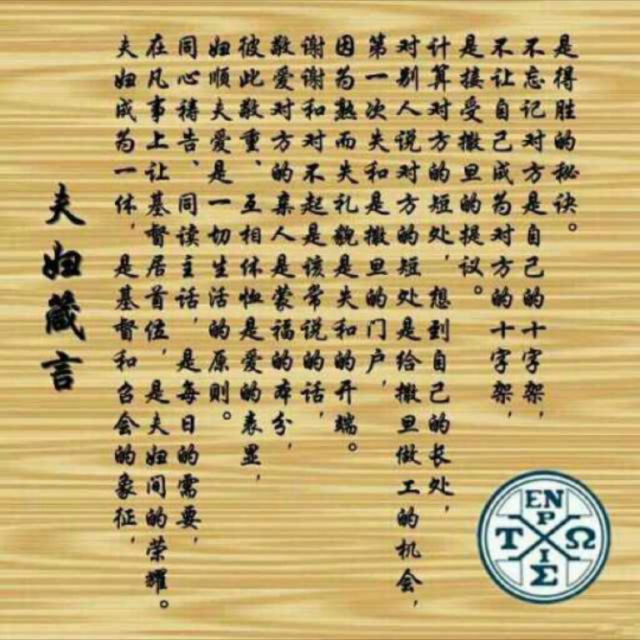 夫妇箴言
夫妇成为一体，是基督和召会的象征，
在凡事上让基督居首位，是夫妇间的荣耀。
同心祷告、同读主话，是每日的需要，
妇顺夫爱是一切生活的原则。
彼此敬重、互相体恤是爱的表显，
敬爱对方的亲人是蒙福的本分，
谢谢和对不起是该常说的话，
因为熟而失礼貌是失和的开端。
第一次失和是撒旦的门户，
对别人说对方的短处是给撒旦做工的机会，
计算对方的短处，想到自己的长处，
是接受撒旦的提议。
不让自己成为对方的十字架，
不忘记对方是自己的十字架，
是得胜的秘诀。
EN
P
T Ω
I
Σ